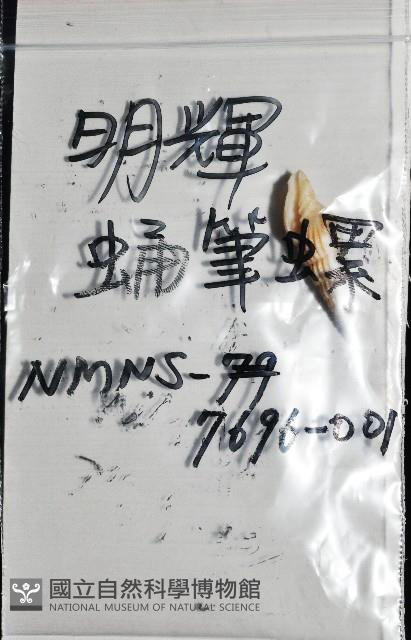 明輝
蛹筆螺
NMNS-79
7696-001
國立自然科學博物館
NATIONAL MUSEUM OF NATURAL SCIENCE